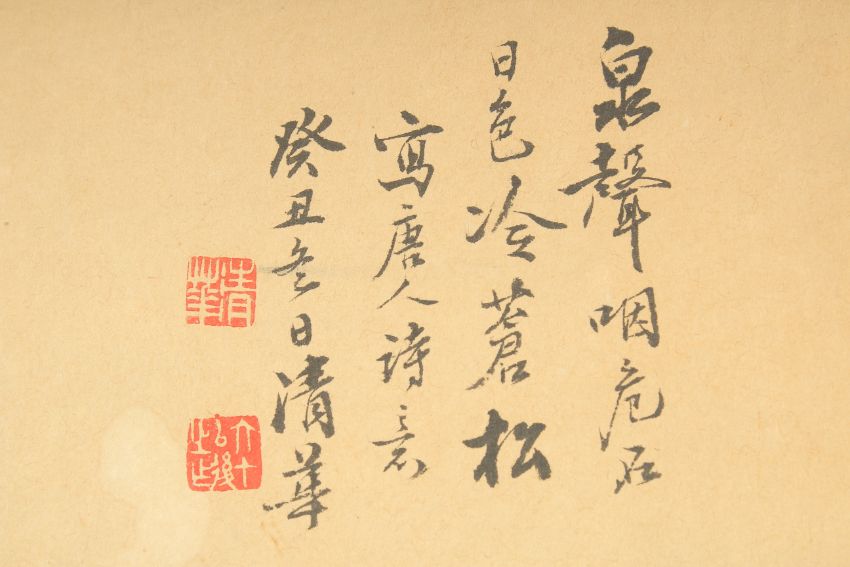 泉聲咽危石
日色冷蒼松
寫唐人詩意
癸丑冬日清華
清華